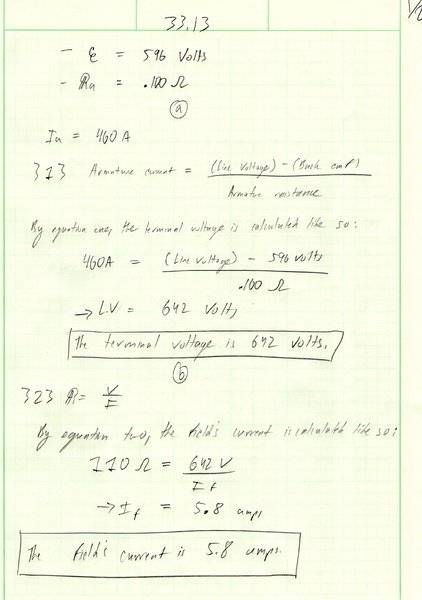 33.13
- ε = 596 Volts
- Ra = .100 Ω
(a)
Ia = 460 A
313 Armature current = (Line Voltage) - (Back emf) / Armature resistance
By equation one, the terminal voltage is calculated like so:
460A = (Line Voltage) - 596 volts / .100 Ω
→ L.V = 642 Volts
The terminal voltage is 642 volts.
(b)
323 R = V / I
By equation two, the field's current is calculated like so:
110 Ω = 642 V / If
→ If = 5.8 amps
The field's current is 5.8 amps.